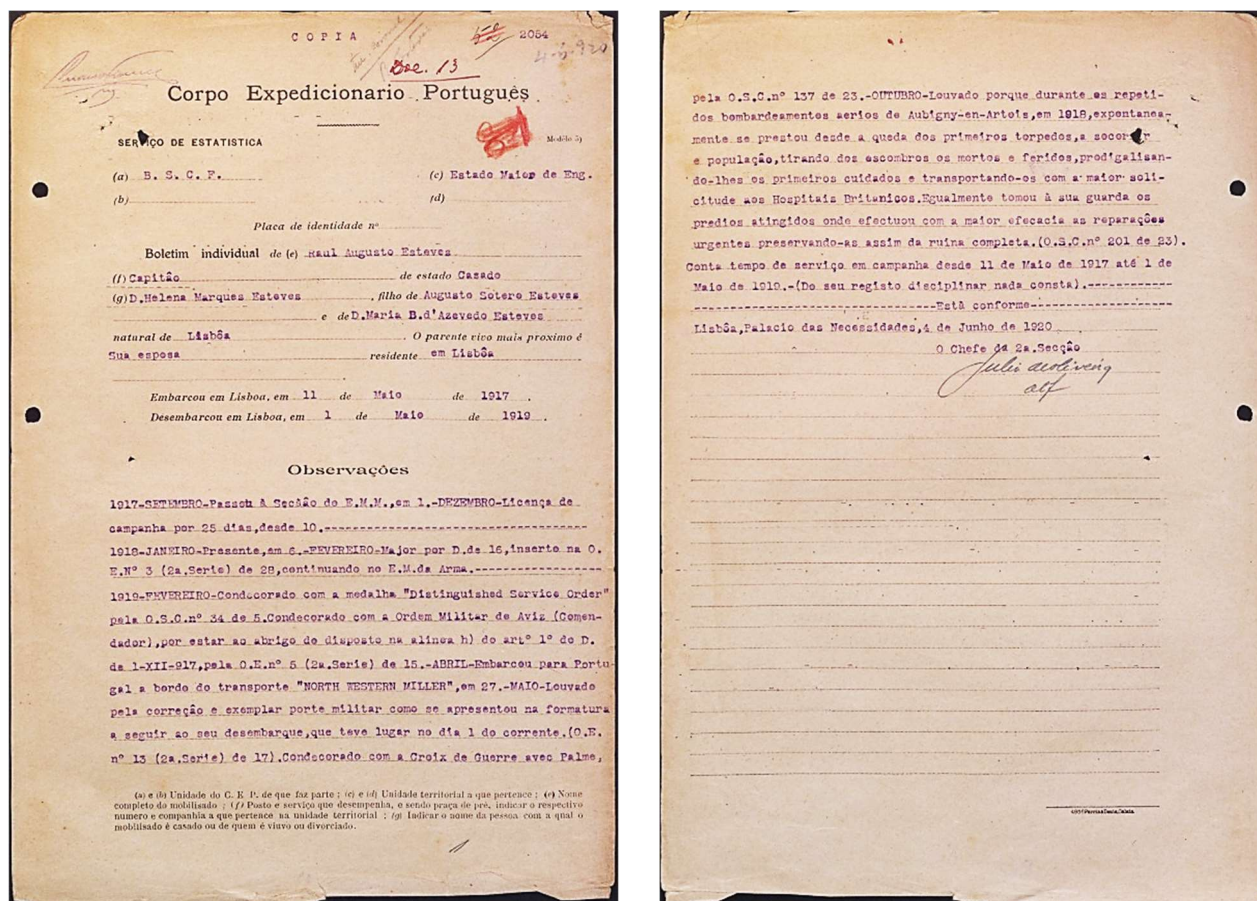 COPIA
2054
4-6-920
Doc. 13
Corpo Expedicionario Português
SERVIÇO DE ESTATISTICA
Modêlo 5)
(a) B. S. C. F. (c) Estado Maior de Eng.
(b) (d)
Placa de identidade nº
Boletim individual de (e) Raul Augusto Esteves
(f) Capitão de estado Casado
(g) D.Helena Marques Esteves , filho de Augusto Sotero Esteves
e de D.Maria B.d'Azevedo Esteves
natural de Lisbôa . O parente vivo mais proximo é
Sua esposa residente em Lisbôa
Embarcou em Lisboa, em 11 de Maio de 1917 .
Desembarcou em Lisboa, em 1 de Maio de 1919 .
Observações
1917-SETEMBRO-Passou à Secção do E.M.M.,em 1.-DEZEMBRO-Licença de
campanha por 25 dias,desde 10.---------------------------------
1918-JANEIRO-Presente,em 6.-FEVEREIRO-Major por D.de 16,inserto na O.
E.Nº 3 (2a.Serie) de 28,continuando no E.M.da Arma.-----------------
1919-FEVEREIRO-Condecorado com a medalha "Distinguished Service Order"
pela O.S.C.nº 34 de 5.Condecorado com a Ordem Militar de Aviz (Comen-
dador),por estar ao abrigo do disposto na alinea h) do artº 1º do D.
de 1-XII-917,pela O.E.nº 5 (2a.Serie) de 15.-ABRIL-Embarcou para Portu-
gal a bordo do transporte "NORTH WESTERN MILLER",em 27.-MAIO-Louvado
pela correção e exemplar porte militar como se apresentou na formatura
a seguir ao seu desembarque,que teve lugar no dia 1 do corrente.(O.E.
nº 13 (2a.Serie) de 17).Condecorado com a Croix de Guerre avec Palme,
(a) e (b) Unidade do C. E. P. de que faz parte ; (c) e (d) Unidade territorial a que pertence ; (e) Nome
completo do mobilisado ; (f) Posto e serviço que desempenha, e sendo praça de pré, indicar o respectivo
numero e companhia a que pertence na unidade territorial ; (g) Indicar o nome da pessoa com a qual o
mobilisado é casado ou de quem é viuvo ou divorciado.
pela O.S.C.nº 137 de 23.-OUTUBRO-Louvado porque durante os repeti-
dos bombardeamentos aerios de Aubigny-en-Artois,em 1918,expontanea-
mente se prestou desde a queda dos primeiros torpedos,a socorrer
e população,tirando dos escombros os mortos e feridos,prodigalisan-
do-lhes os primeiros cuidados e transportando-os com a maior soli-
citude aos Hospitais Britanicos.Egualmente tomou à sua guarda os
predios atingidos onde efectuou com a maior efecacia as reparações
urgentes preservando-as assim da ruina completa.(O.S.C.nº 201 de 23).
Conta tempo de serviço em campanha desde 11 de Maio de 1917 até 1 de
Maio de 1919.-(Do seu registo disciplinar nada consta).-----------
-----------------------------Está conforme-------------------
Lisbôa,Palacio das Necessidades,4 de Junho de 1920
O Chefe da 2a.Secção
Julio de Oliveira
alf